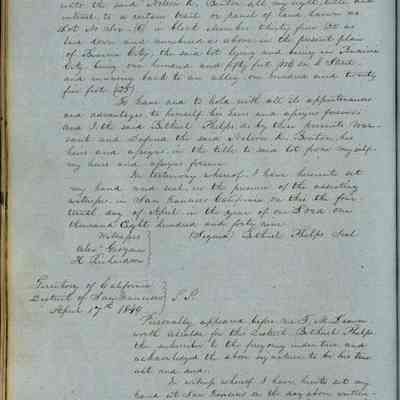 unto the said Nelson R. Benton all my right title and
interest to a certain tract or parcel of land known as
Lot No. in block Number thirty five as
laid down and numbered as above in the present plan
of Benicia City, the said lot lying and being in Benicia
City, being one hundred and fifty feet
and running back to an alley one hundred and twenty
five feet (125)
To have and to hold with all its appurtenances
and advantages to himself his heirs and assigns forever
and I the said Bethuel Phelps do by these presents War-
rant and Defend the said Nelson R. Benton, his
heirs and assigns in the title to said lot from myself
my heirs and assigns forever
In testimony whereof I have hereunto set
my hand and seal in the presence of the assisting
witnesses in San Francisco California on this the four
teenth day of April in the year of our Lord one
thousand Eight hundred and forty nine
Witnesses Signed Bethuel Phelps Seal
H Richardson
Territory of California
District of San Francisco S.S.
April 17th 1849
Personally appeared before me T. M. Leaven
worth Alcalde for this District Bethuel Phelps
the subscriber to the foregoing indenture and
acknowledged the above signature to be his true
act and deed.
In witness whereof I have hereto set my
hand at San Francisco on the day above written